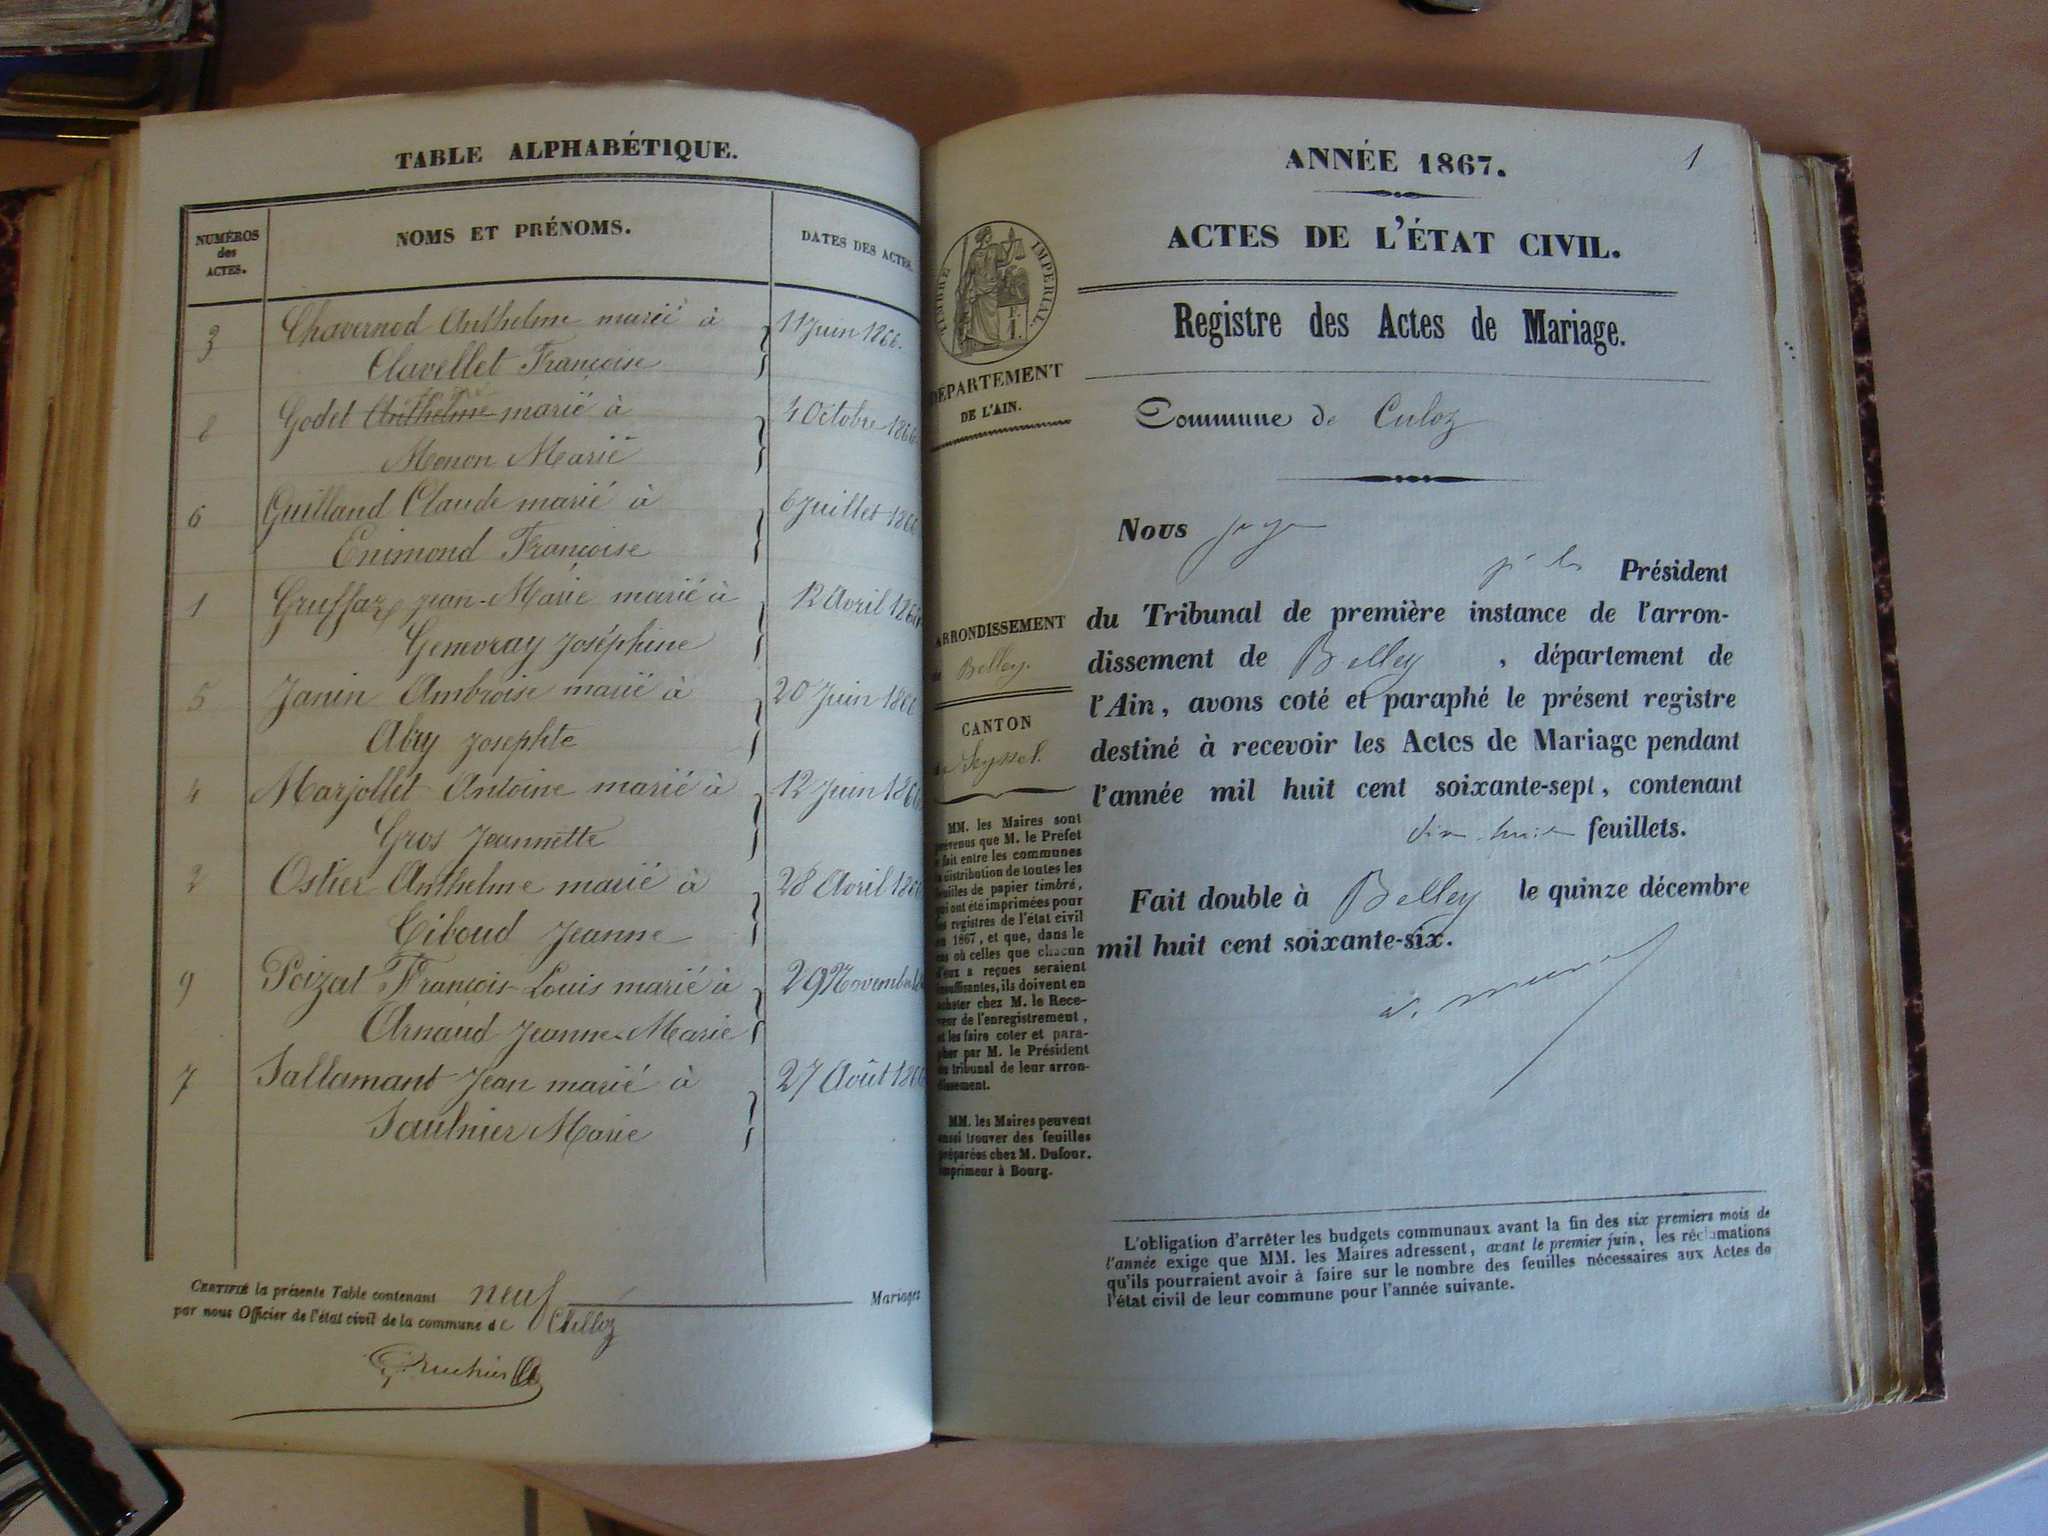 TABLE ALPHABÉTIQUE.
NUMÉROS
des
ACTES.
NOMS ET PRÉNOMS.
DATES DES ACTES.
3 Chavernod Anthelme marié à 11 Juin 1866.
Clavellet Françoise
8 Godet Anthelme marié à 4 Octobre 1866
Monon Marie
6 Guilland Claude marié à 6 Juillet 186
Enimond Françoise
1 Gruffaz Jean-Marie marié à 12 Avril 186
Genevray Joséphine
5 Janin Ambroise marié à 20 Juin 186
Abry Josephte
4 Marjollet Antoine marié à 12 Juin 186
Gros Jeannette
2 Ostier Anthelme marié à 28 Avril 186
Ciboud Jeanne
9 Poizat François-Louis marié à 29 Novembre
Arnaud Jeanne-Marie
7 Sallamant Jean marié à 27 Août 1866
Saulnier Marie
CERTIFIÉ la présente Table contenant neuf Mariages
par nous Officier de l'état civil de la commune de Culloz
ANNÉE 1867.
1
ACTES DE L'ÉTAT CIVIL.
Registre des Actes de Mariage.
TIMBRE IMPÉRIAL.
DÉPARTEMENT
DE L'AIN.
Commune de Culoz
Nous
Président
du Tribunal de première instance de l'arron-
dissement de Belley, département de
l'Ain, avons coté et paraphé le présent registre
destiné à recevoir les Actes de Mariage pendant
l'année mil huit cent soixante-sept, contenant
dix-huit feuillets.
Fait double à Belley le quinze décembre
mil huit cent soixante-six.
ARRONDISSEMENT
de Belley.
CANTON
de Seyssel.
MM. les Maires sont
prévenus que M. le Préfet
a fait entre les communes
la distribution de toutes les
feuilles de papier timbré,
qui ont été imprimées pour
les registres de l'état civil
en 1867, et que, dans le
cas où celles que chacun
d'eux a reçues seraient
insuffisantes, ils doivent en
acheter chez M. le Rece-
veur de l'enregistrement,
et les faire coter et para-
pher par M. le Président
du tribunal de leur arron-
dissement.
MM. les Maires peuvent
aussi trouver des feuilles
préparées chez M. Dufour,
imprimeur à Bourg.
L'obligation d'arrêter les budgets communaux avant la fin des six premiers mois de
l'année exige que MM. les Maires adressent, avant le premier juin, les réclamations
qu'ils pourraient avoir à faire sur le nombre des feuilles nécessaires aux Actes de
l'état civil de leur commune pour l'année suivante.